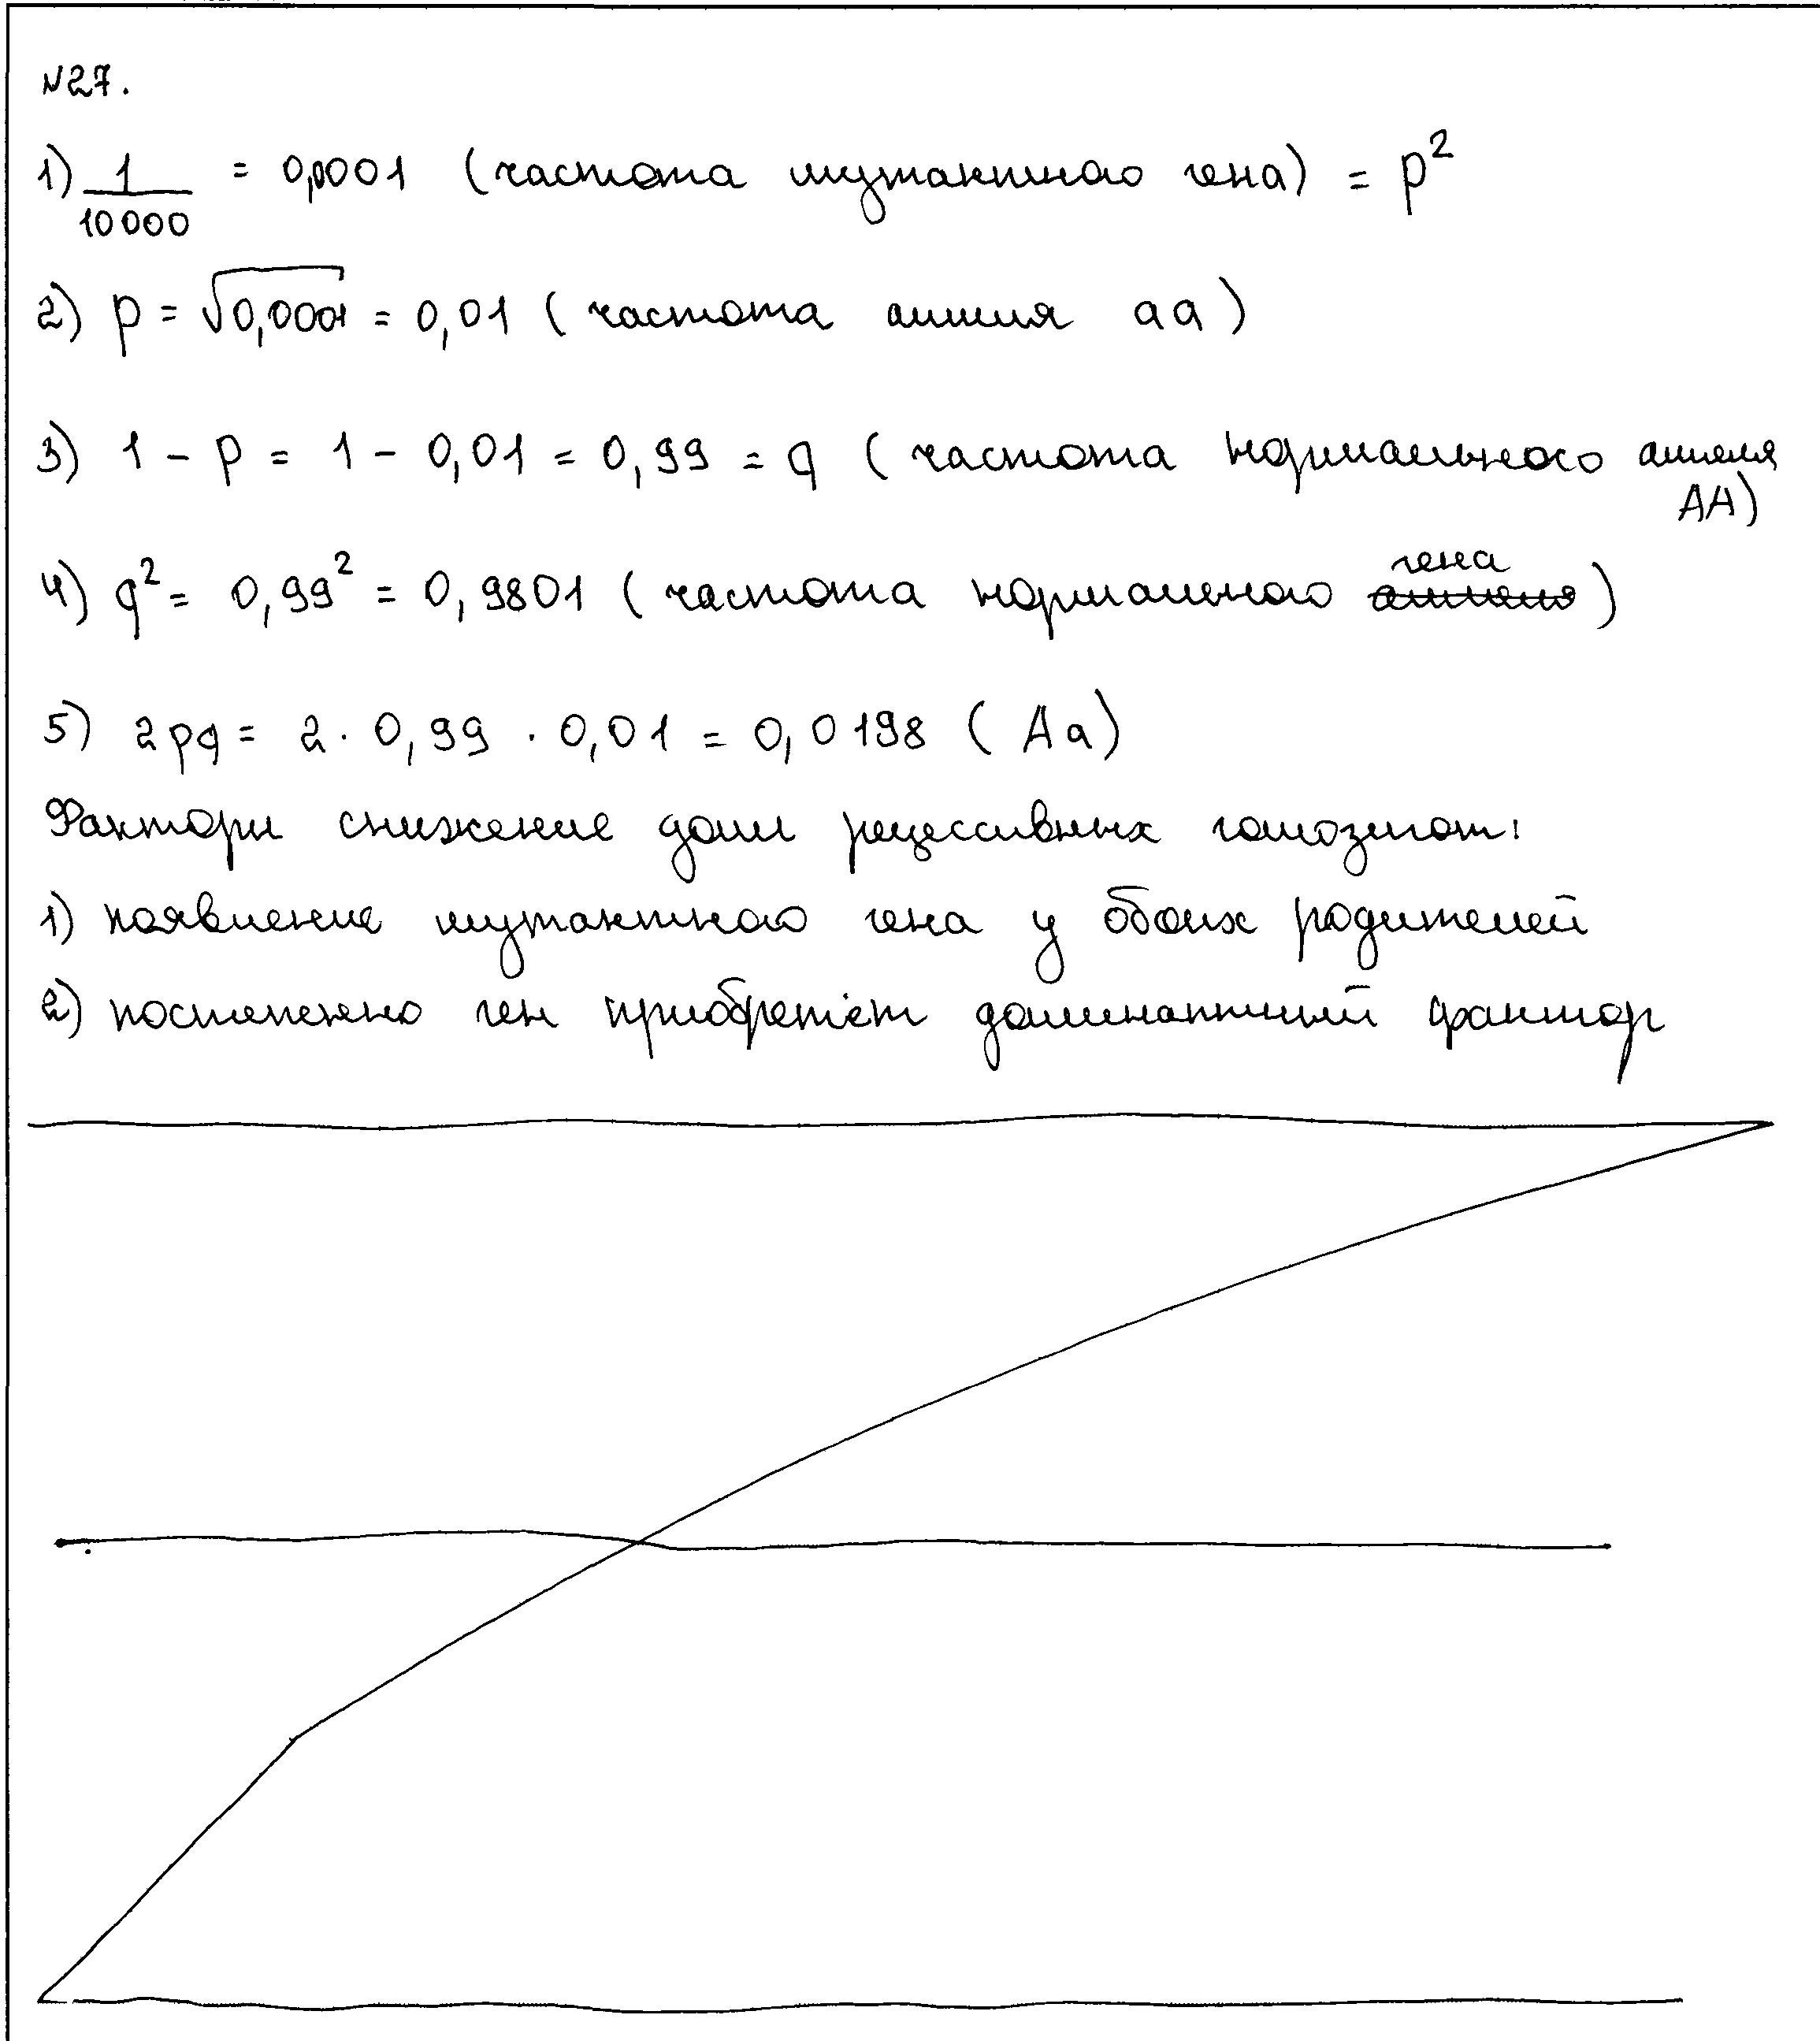 №27.
1) 1/10000 = 0,0001 (частота мутантного гена) = p²
2) p = √0,0001 = 0,01 (частота аллеля aa)
3) 1 - p = 1 - 0,01 = 0,99 = q (частота нормального аллеля AA)
4) q² = 0,99² = 0,9801 (частота нормального ~~аллеля~~ гена)
5) 2pq = 2 · 0,99 · 0,01 = 0,0198 (Aa)
Факторы снижение доли рецессивных гомозигот:
1) появление мутантного гена у обоих родителей
2) постепенно ген приобретёт доминантный фактор